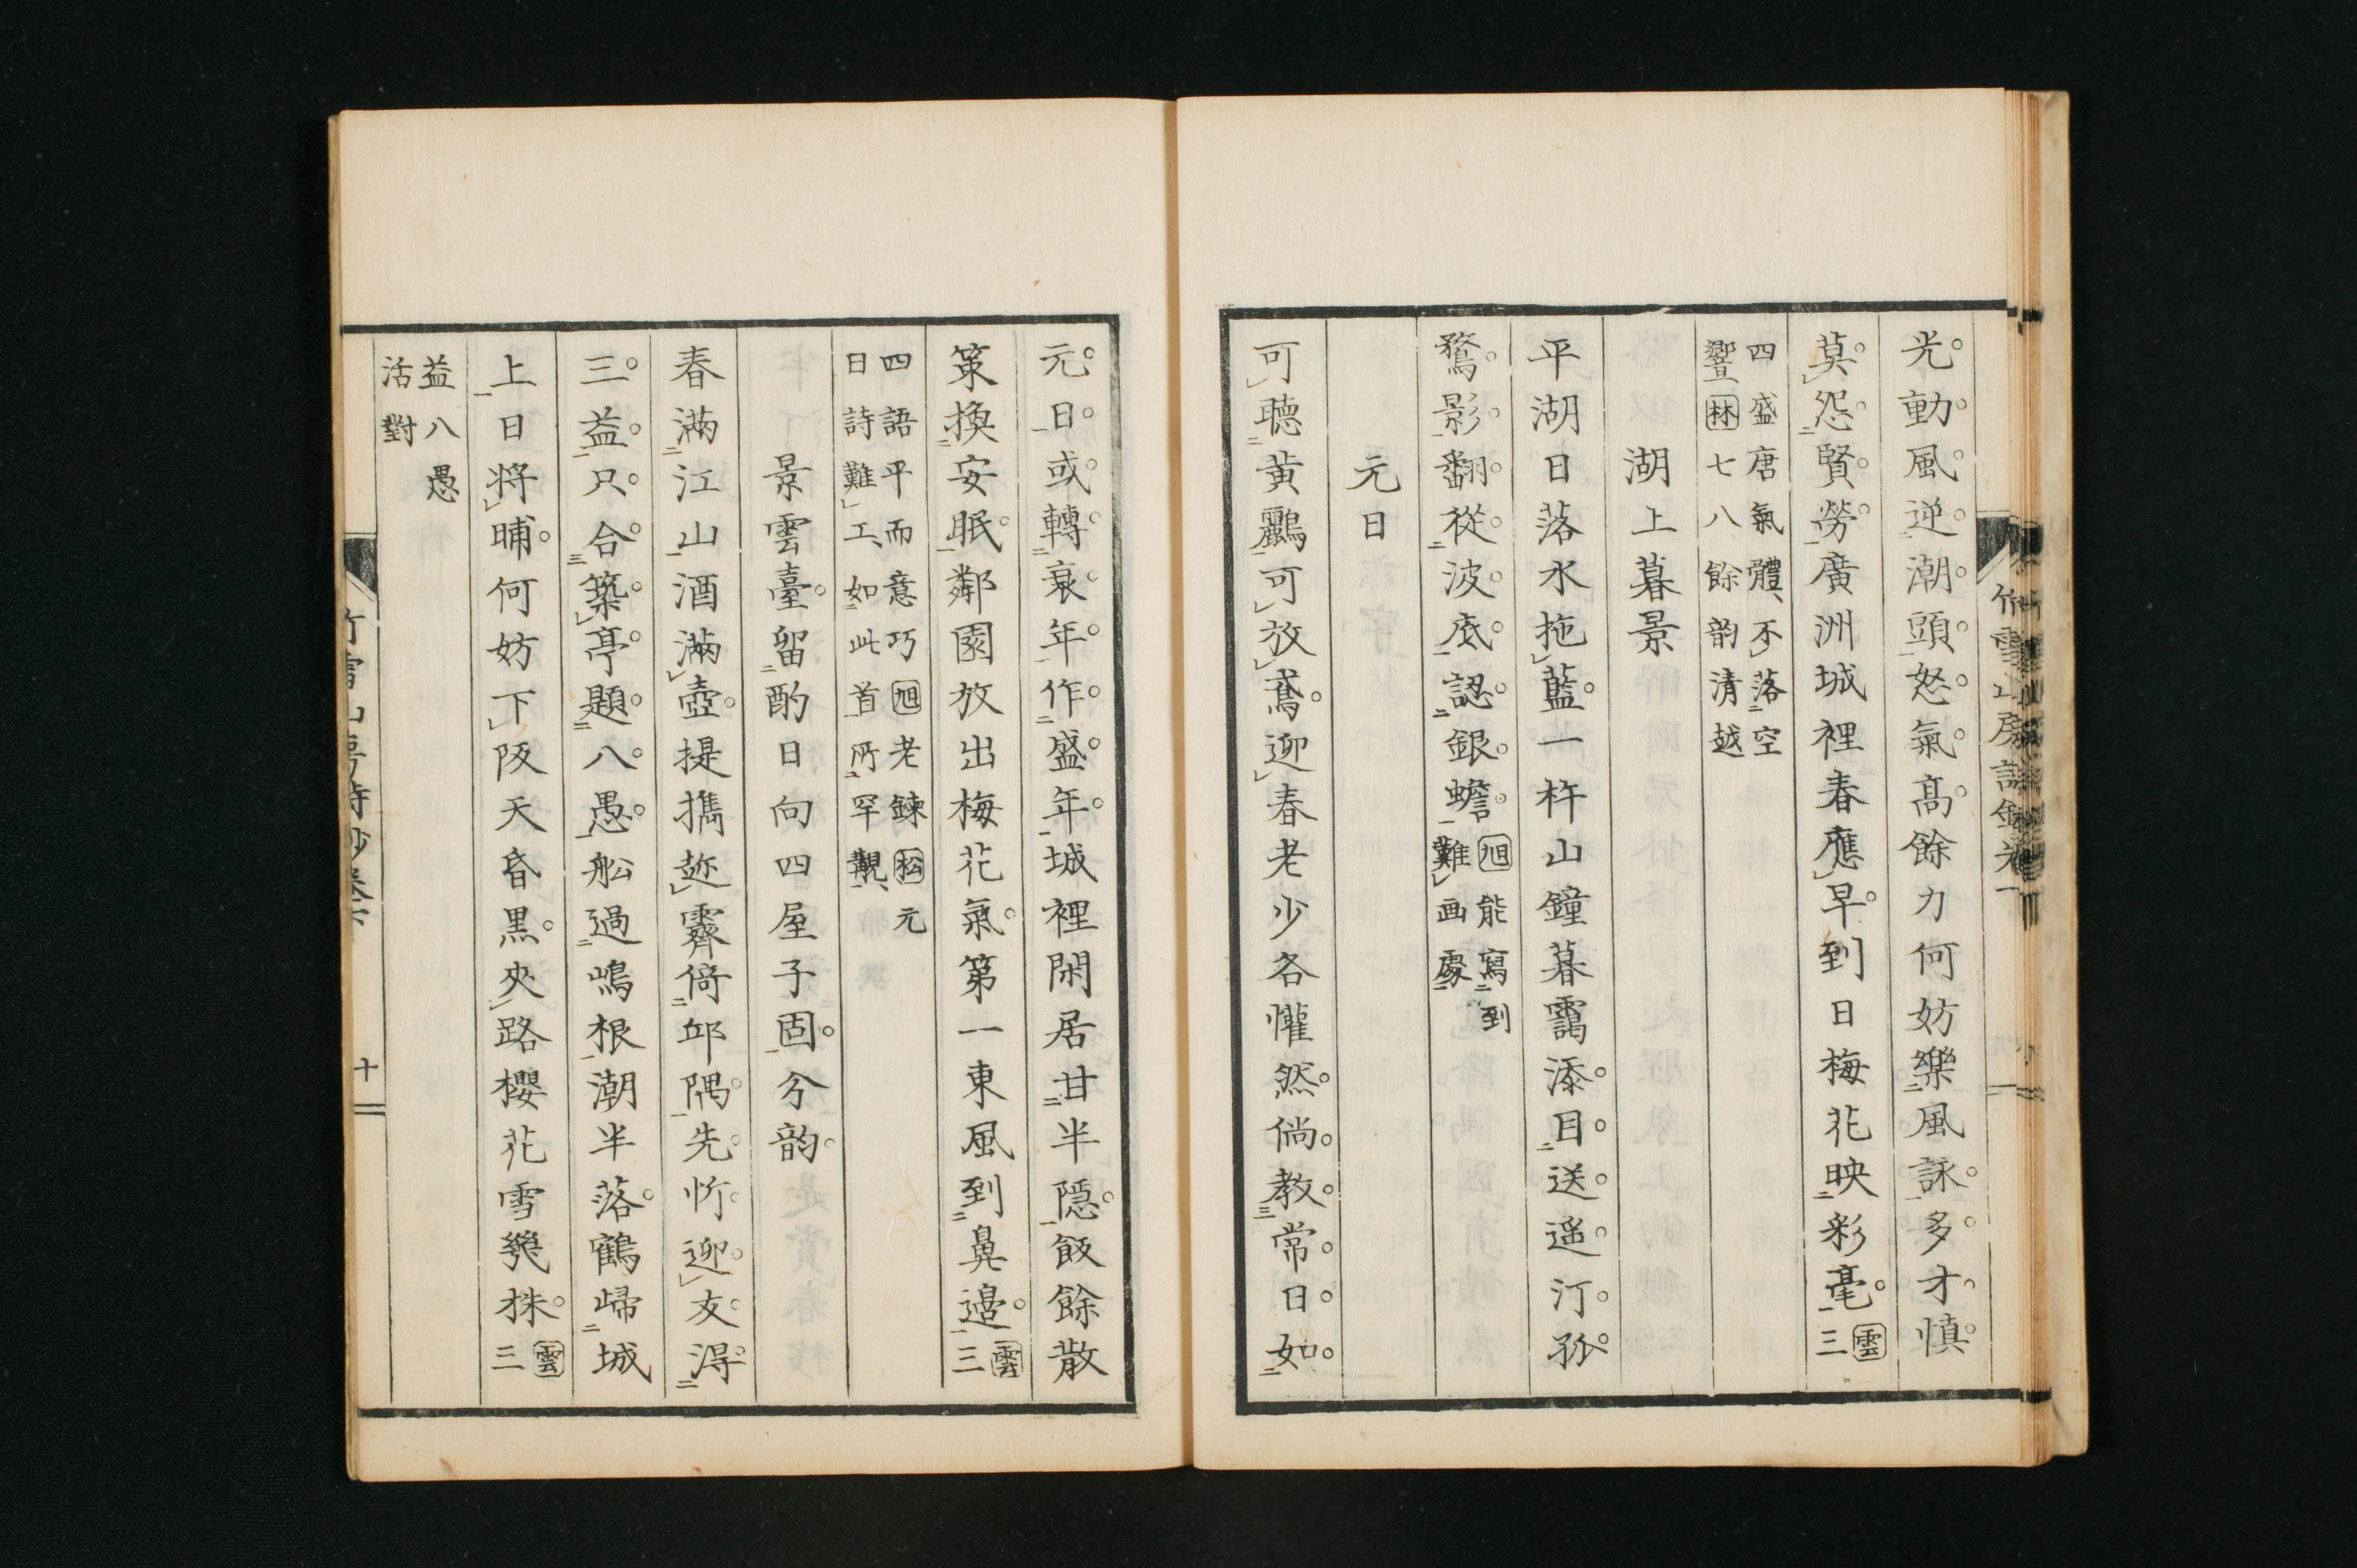 光動風逆潮頭怒氣高餘力何妨樂風詠多才慎
莫怨賢勞廣洲城裡春應早到日梅花映彩毫雲三
四盛唐氣體不落空
響林七八餘韵清越
湖上暮景
平湖日落水拖藍一杵山鐘暮靄添目送遥汀孤
鶩影翻從波底認銀蟾旭能寫到
難画處
元日
可聽黃鸝可放鳶迎春老少各懽然倘教常日如
元日或轉衰年作盛年城裡閑居甘半隱飯餘散
策換安眠鄰園放出梅花氣第一東風到鼻邉雲三
四語平而意巧旭老鍊松元
日詩難工如此首所罕覯
景雲臺留酌日向四屋子固分韵
春滿江山酒滿壺提攜趂霽倚邱隅先忻迎友淂
三益只合築亭題八愚船過嶋根潮半落鶴歸城
上日將晡何妨下阪天昏黒夾路櫻花雪幾株雲三
益八愚
活對
十